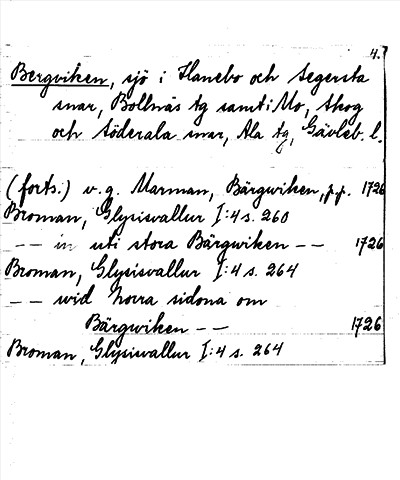 4.
Bergviken, sjö i Hanebo och Segersta
snar, Bollnäs tg samt i Mo, Skog
och Söderala snar, Ala tg, Gävleb. l.
(forts.) v.g. Marman, Bärgwiken, p.p. 1726
Broman, Glysisvallur I:4 s. 260
-- in uti stora Bärgwiken -- 1726
Broman, Glysisvallur I:4 s. 264
-- wid norra sidona om
Bärgwiken -- 1726
Broman, Glysisvallur I:4 s. 264